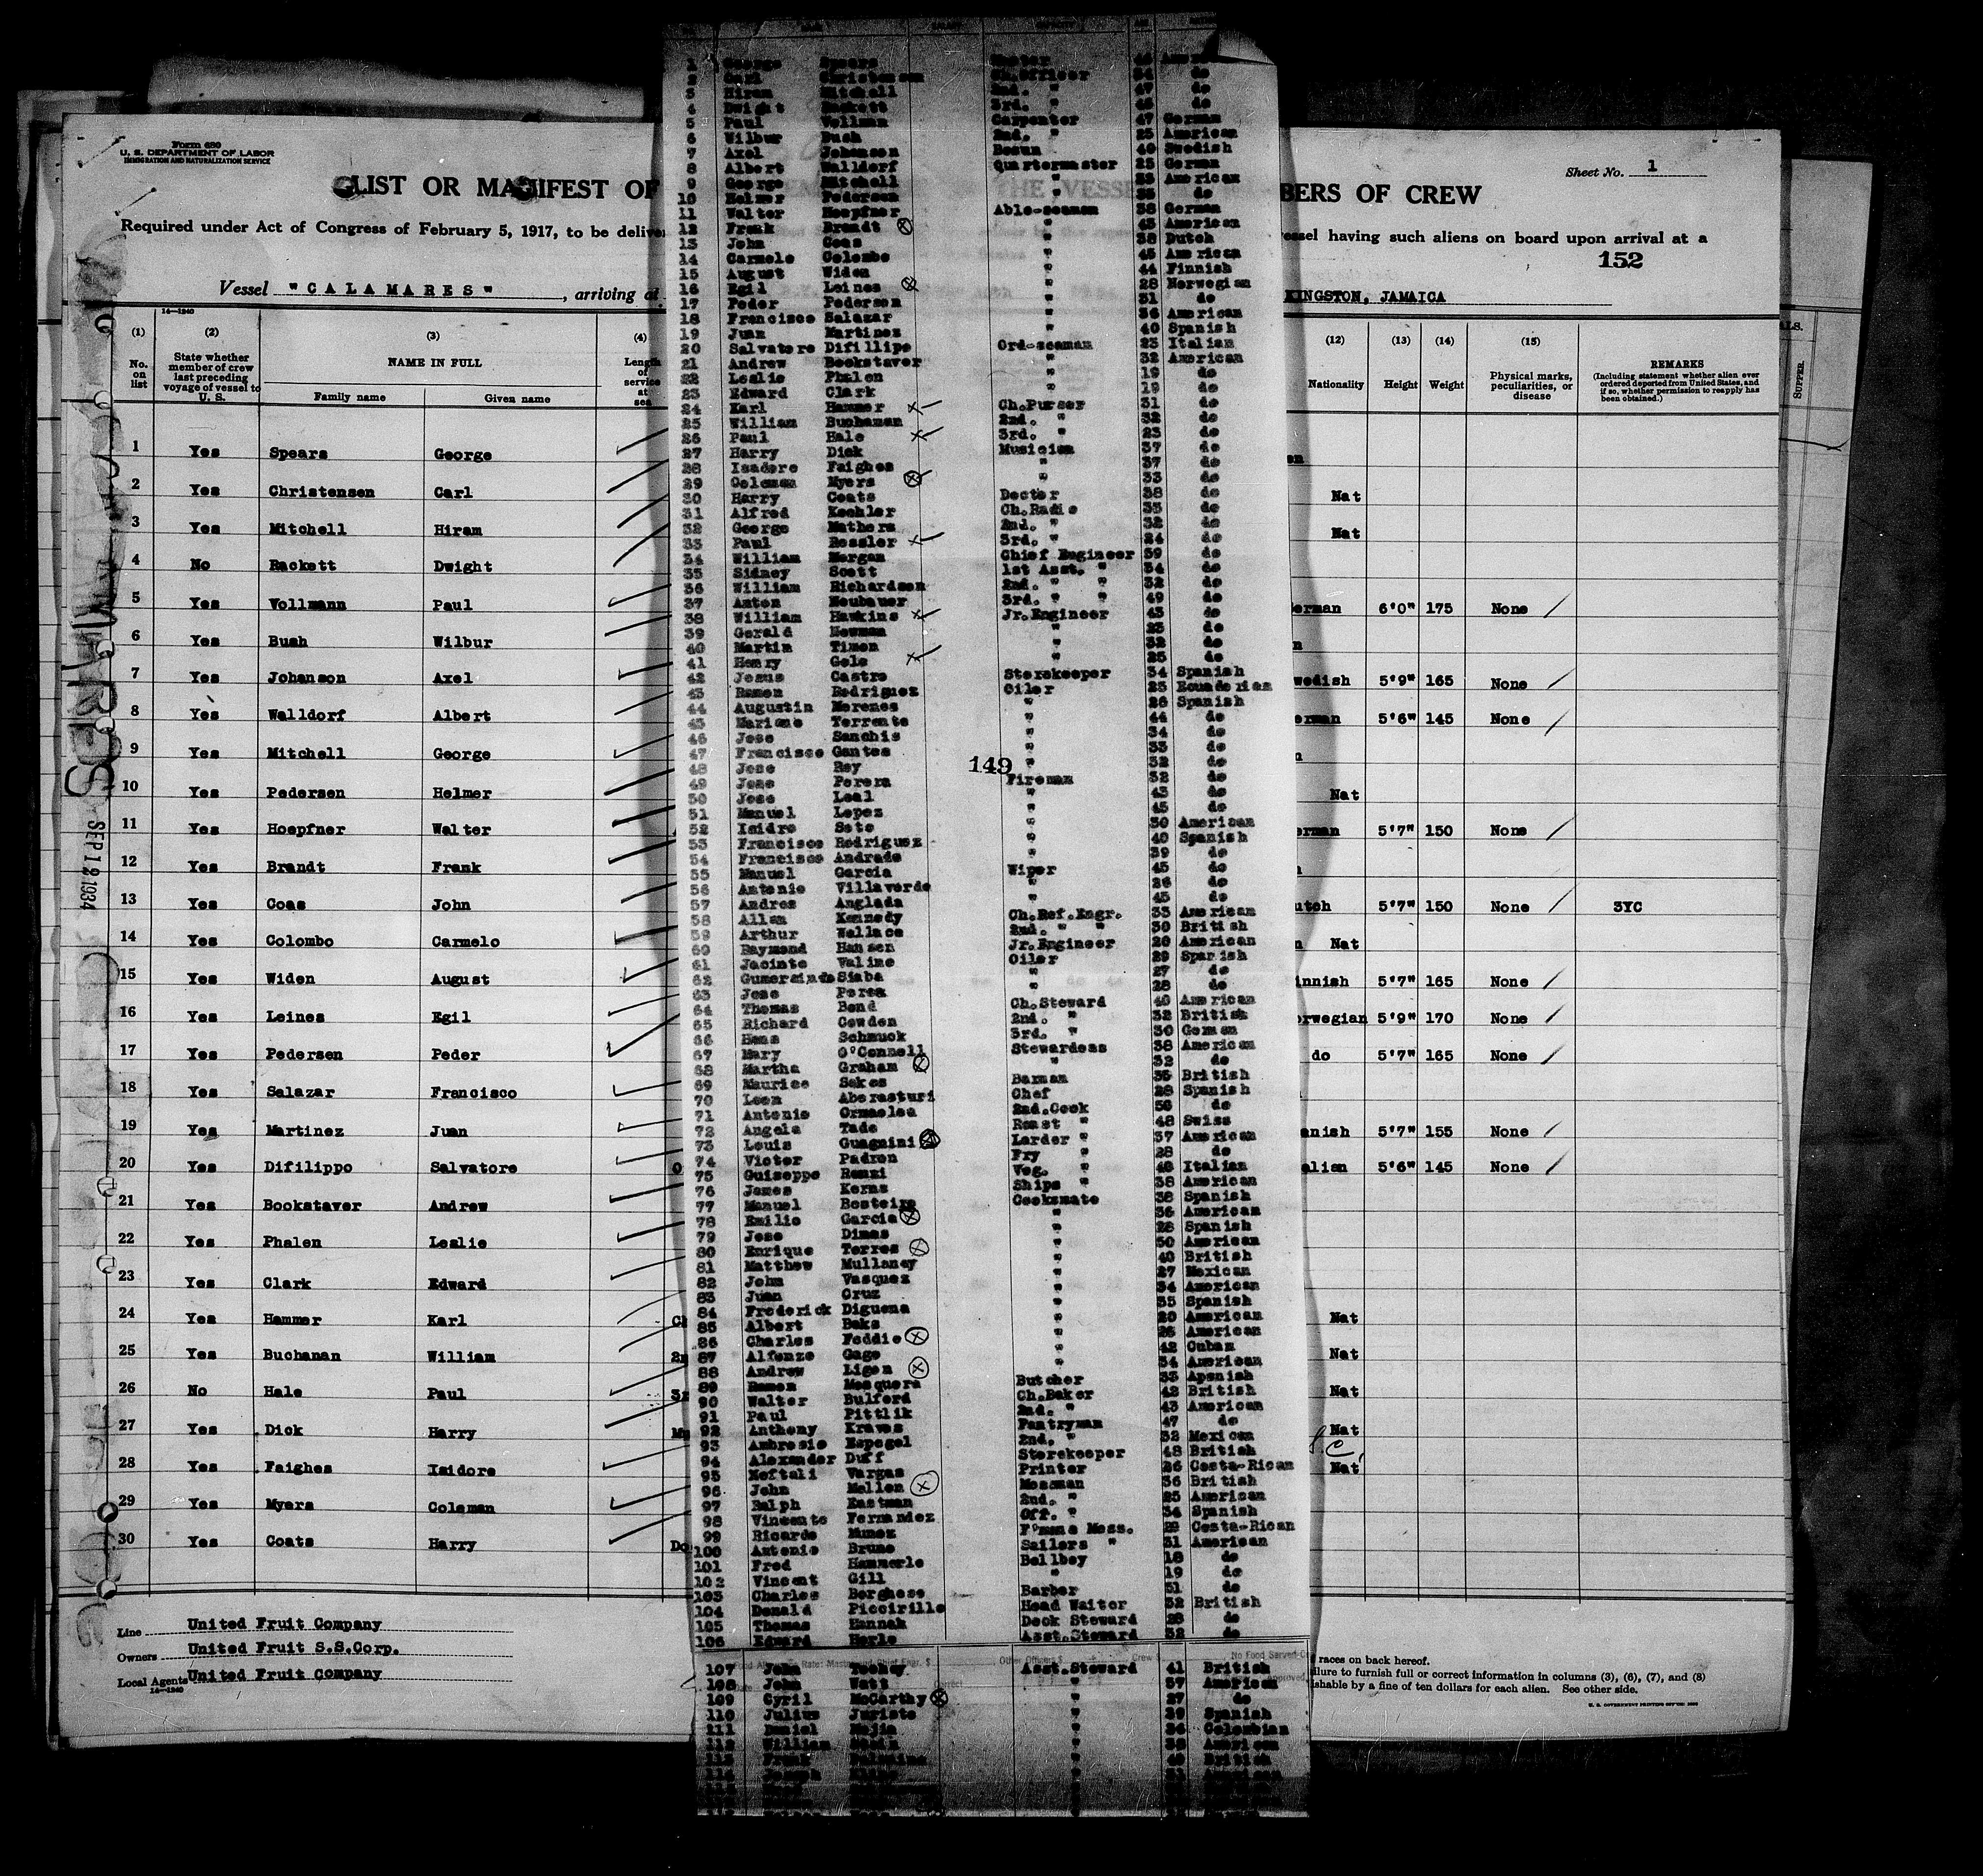 Form 680
U. S. DEPARTMENT OF LABOR
IMMIGRATION AND NATURALIZATION SERVICE
LIST OR MANIFEST OF
Required under Act of Congress of February 5, 1917, to be delive
Vessel "CALAMARES", arriving at
14-1240
(1) (2) (3) (4)
No. on list
State whether member of crew last preceding voyage of vessel to U. S.
NAME IN FULL
Family name Given name
Length of service at sea
1 Yes Spears George
2 Yes Christensen Carl
3 Yes Mitchell Hiram
4 No Rackett Dwight
5 Yes Vollmann Paul
6 Yes Bush Wilbur
7 Yes Johanson Axel
8 Yes Walldorf Albert
9 Yes Mitchell George
10 Yes Pedersen Helmer
11 Yes Hoepfner Walter
12 Yes Brandt Frank
13 Yes Coas John
14 Yes Colombo Carmelo
15 Yes Widen August
16 Yes Leines Egil
17 Yes Pedersen Peder
18 Yes Salazar Francisco
19 Yes Martinez Juan
20 Yes Difilippo Salvatore O
21 Yes Bookstaver Andrew
22 Yes Phalen Leslie
23 Yes Clark Edward
24 Yes Hammer Karl
25 Yes Buchanan William 2n
26 No Hale Paul
27 Yes Dick Harry
28 Yes Faighes Isidore
29 Yes Myers Coleman
30 Yes Coats Harry Do
SEP 12 1934
Line United Fruit Company
Owners United Fruit S.S.Corp.
Local Agents United Fruit Company
14-1240
1 George Spears Master
2 Carl Christensen Ch.Officer 34 do
3 Hiram Mitchell 2nd. " 47 do
4 Dwight Rackett 3rd. " do
5 Paul Vollman Carpenter 47 German
6 Wilbur Bush 2nd. " 25 American
7 Axel Johansen Bosun 40 Swedish
8 Albert Walldorf Quartermaster 25 German
9 George Mitchell " American
10 Helmer Pedersen " do
11 Walter Hoepfner Able-seaman 38 German
12 Frank Brandt " 43 American
13 John Coas " 38 Dutch
14 Carmelo Colombo " 45 American
15 August Widen " 44 Finnish
16 Egil Leines " 28 Norwegian
17 Peder Pedersen " 31 do
18 Francisco Salazar " 36 American
19 Juan Martinez " 40 Spanish
20 Salvatore Difillipo Ord-seaman 23 Italian
21 Andrew Bookstaver " 32 American
22 Leslie Phalen " 19 do
23 Edward Clark " 19 do
24 Karl Hammer Ch.Purser 31 do
25 William Buchanan 2nd. " 32 do
26 Paul Hale 3rd. " 23 do
27 Harry Dick Musician 37 do
28 Isadore Faighes " 37 do
29 Coleman Myers " 33 do
30 Harry Coats Doctor 38 do
31 Alfred Koehler Ch.Radio 35 do
32 George Mathers 2nd. " 32 do
33 Paul Ressler 3rd. " 24 do
34 William Morgan Chief Engineer 59 do
35 Sidney Scott 1st Asst. " 34 do
36 William Richardson 2nd. " " 32 do
37 Anton Neubauer 3rd. " " 49 do
38 William Hawkins Jr.Engineer 43 do
39 Gerald Newman " 23 do
40 Martin Timon " 32 do
41 Henry Gole " 25 do
42 Jesus Castro Storekeeper 34 Spanish
43 Ramon Rodriguez Oiler 25 Ecuadorian
44 Augustin Morenos " 26 Spanish
45 Mariano Torrente " 44 do
46 Jose Sanchis " 34 do
47 Francisco Gantes " 33 do
48 Jose Rey " 32 do
149
49 Jose Perera Fireman 32 do
50 Jose Leal " 43 do
51 Manuel Lopez " 45 do
52 Isidro Soto " 30 American
53 Francisco Rodriguez " 40 Spanish
54 Francisco Andrade " 39 do
55 Manuel Garcia Wiper 45 do
56 Antonio Villaverde " 26 do
57 Andres Anglada " 45 do
58 Allan Kennedy Ch.Ref.Engr. 33 American
59 Arthur Wallace 2nd. " " 30 British
60 Raymond Hansen Jr.Engineer 20 American
61 Jacinto Valino Oiler 29 Spanish
62 Gumersindo Siaba " 27 do
63 Jose Perea " 28 do
64 Thomas Bond Ch.Steward 40 American
65 Richard Cowden 2nd. " 32 British
66 Hans Schmuck 3rd. " 30 Geman
67 Mary O'Connell Stewardess 38 American
68 Martha Graham " 32 do
69 Maurice Sakos Barman 35 British
70 Leon Aberasturi Chef 28 Spanish
71 Antonio Ormaelea 2nd.Cook 56 do
72 Angelo Tade Roast " 48 Swiss
73 Louis Guagnini Larder " 37 American
74 Victor Padron Fry " 28 do
75 Guiseppe Renzi Veg. " 40 Italian
76 James Kerns Ships " 38 American
77 Manuel Bosteiro Cooksmate 38 Spanish
78 Emilio Garcia " 36 American
79 Jose Dimas " 28 Spanish
80 Enrique Torres " 50 American
81 Matthew Mullaney " 40 British
82 John Vasquez " 27 Mexican
83 Juan Cruz " 34 American
84 Frederick Diguena " 35 Spanish
85 Albert Boks " 20 American
86 Charles Feddie " 26 American
87 Alfonzo Gago " 42 Cuban
88 Andrew Ligon " 34 American
89 Ramon Mosquera Butcher 33 Apsnish
90 Walter Bulford Ch.Baker 42 British
91 Paul Pittlik 2nd. " 43 American
92 Anthony Kraves Pantryman 47 do
93 Ambrosio Espegel 2nd. " 32 Mexican
94 Alexander Duff Storekeeper 48 British
95 Neftali Vargas Printer 26 Costa-Rican
96 John Mellen Messman 36 British
97 Ralph Eastman 2nd. " 25 American
98 Vincente Fernandez Off. " 34 Spanish
99 Ricardo Munoz F'mans Mess. 29 Costa-Rican
100 Antonio Bruno Sailors " 31 American
101 Fred Hammerle Bellboy 18 do
102 Vincent Gill " 19 do
103 Charles Borghese Barber 51 do
104 Donald Piccirillo Head Waiter 32 British
105 Thomas Hannah Deck Steward 28 do
106 Edward Merle Asst.Steward 32 do
107 John Toohey Asst.Steward 41 British
108 John Watt " 57 American
109 Cyril McCarthy " 27 do
110 Julius Juriste " 29 Spanish
111 Daniel Mejia " Colombian
112 William " American
BERS OF CREW
Sheet No. 1
ssel having such aliens on board upon arrival at a
152
KINGSTON, JAMAICA
(12) (13) (14) (15)
Nationality Height Weight
Physical marks, peculiarities, or disease
REMARKS
(Including statement whether alien ever ordered deported from United States, and if so, whether permission to reapply has been obtained.)
SUPPER
en
Nat
Nat
erman 6'0" 175 None
n
wedish 5'9" 165 None
erman 5'6" 145 None
n
Nat
erman 5'7" 150 None
utch 5'7" 150 None 3YC
n Nat
innish 5'7" 165 None
orwegian 5'9" 170 None
do 5'7" 165 None
anish 5'7" 155 None
alian 5'6" 145 None
Nat
Nat
Nat
Nat
Nat
races on back hereof.
ilure to furnish full or correct information in columns (3), (6), (7), and (8)
ishable by a fine of ten dollars for each alien. See other side.
U. S. GOVERNMENT PRINTING OFFICE